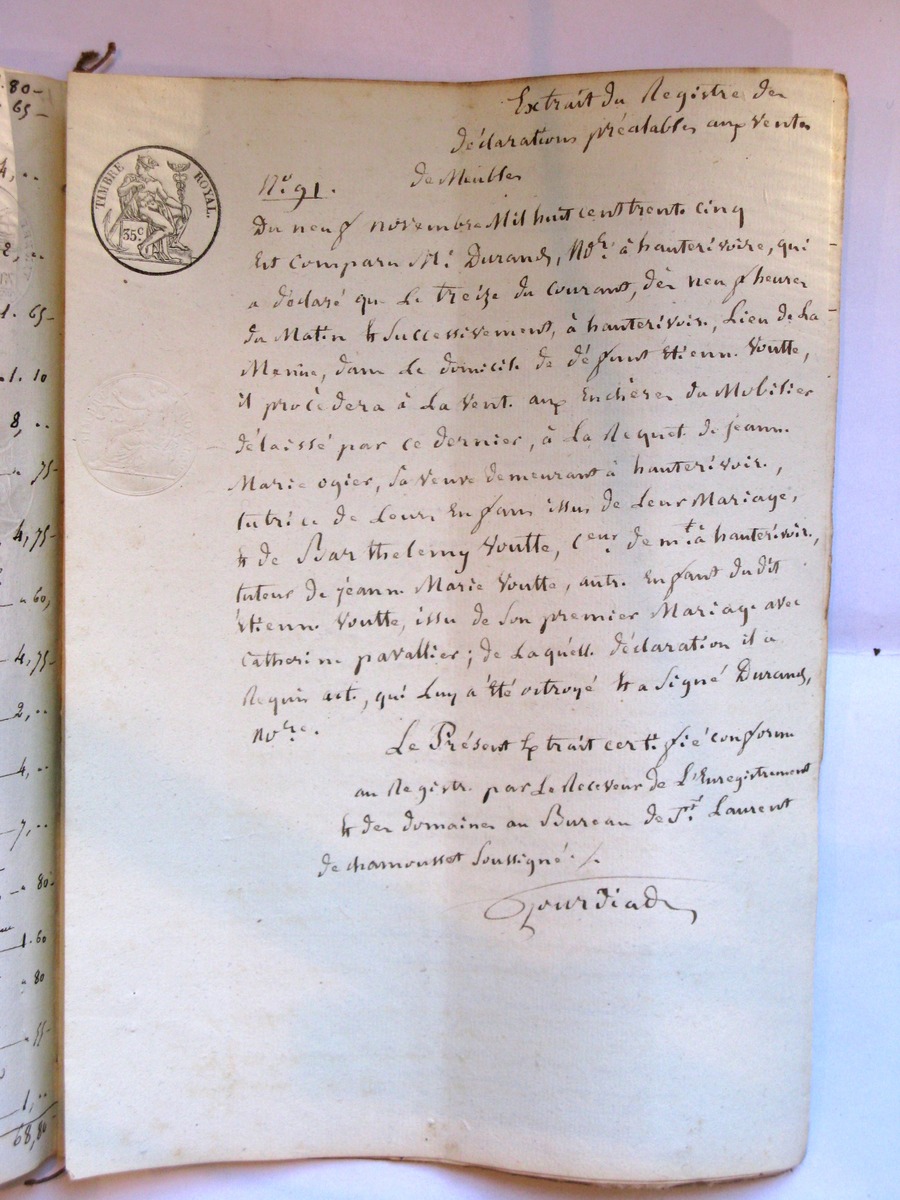 Extrait du Registre des
déclarations préalables aux ventes
de Meubles
N.º 91.
TIMBRE ROYAL.
35 c
Du neuf novembre Mil huit cent trente cinq
Est Comparu M.e Durand, No.re à hauterivoire, qui
a déclaré que le treize du courant, dès neuf heures
du Matin & Successivement, à hauterivoire, Lieu de La
dans Le domicile de défunt étienne Voutte,
il procèdera à La vente aux Enchères du Mobilier
délaissé par ce dernier, à La Requete de jeanne
Marie ogier, sa veuve demeurant à hauterivoire,
tutrice de Leurs Enfans issus de Leur Mariage,
& de Barthelemy Voutte, c.eur de m.t à hauterivoire,
tuteur de jeanne Marie Voutte, autre Enfant dudit
étienne Voutte, issu de son premier Mariage avec
Catherine pavallier; de Laquelle déclaration il a
Requis acte, qui Luy a été octroyé & a Signé Durand,
No.re.
Le Présent Extrait certifié conforme
au Registre par Le Receveur de L'Enregistrement
& des domaines au Bureau de S.t Laurent
de chamousset Soussigné ./.
80
65
4, ..
2, ..
1. 65
1. 10
8, ..
" 75
4,75
" 60,
4,75
2, ..
4, ..
7, ..
" 80
1.60
" 80
" 55
1, ..
68,80